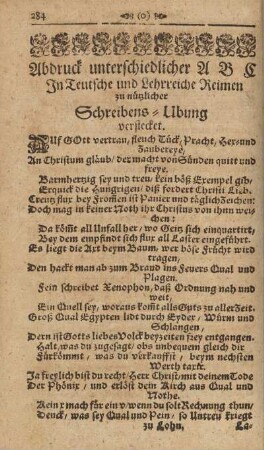 284 (0)
Abdruck unterschiedlicher A B C
In Teutsche und Lehrreiche Reimen
zu nützlicher
Schreibens-Ubung
verstecket.
AUf GOtt vertrau, fleuch Tück, Pracht, Hex- und
Zaubereye,
An Christum gläub, der macht von Sünden quitt und
freye.
Barmhertzig sey und treu, kein böß Exempel gib,
Erquick die Hungrigen; diß fordert Christi Lieb.
Creutz flux bey Frommen ist Panier und täglich Zeichen:
Doch mag in keiner Noth ihr Christus von ihm wei-
chen:
Da kömst all Unfall her, wo Geiz sich einquartirt,
Bey dem empfindt sich flux all Laster eingeführt.
Es liegt die Axt beym Baum, wer böse Frücht wird
tragen,
Den hackt man ab zum Brand ins Feuers Qual und
Plagen.
Fein schreibet Xenophon, daß Ordnung nah und
weit,
Ein Quell sey, woraus kömst alls Guts zu aller Zeit.
Groß Qual Egypten lidt durch Eyder, Würm und
Schlangen,
Dern ist Gotts liebes Volck bey zeiten frey entgangen.
Halt, was du zugesagt, obs unbequem gleich dir
Fürkömmt, was du verkauffst, beym nechsten
Werth taxir.
Ja freylich bist du recht, Herr Christ, mit deinem Tode
Der Phönix, und erlöst dein Kirch aus Qual und
Nothe.
Kein x mach für ein v wenn du solt Rechnung thun,
Denck, was sey Qual und Pein, so Untreu kriegt
zu Lohn,
La-